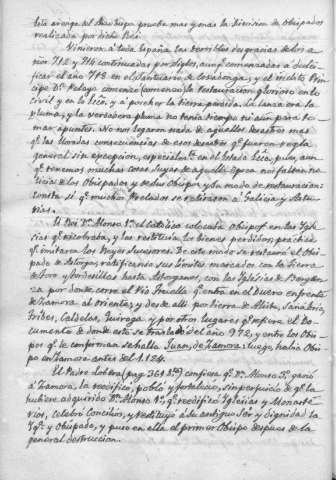 este arreglo del Real Rey prueba mas y mas la Division de Obispados
realizada por dicho Rei.
Vinieron á toda España las terribles desgracias de los a-
ños 712 y 714 continuadas por siglos, aunq comenzadas á dulci-
ficar el año 718 en el Santuario de Covadonga; y el inclito Prin-
cipe Dn Pelayo comenzó la restauracion gloriosa en lo
civil y en lo Ecco, y á percber la tierra perdida. La lanza era la
pluma, y la verdadera pluma no tenia tiempo ni aun para to-
mar apuntes. No nos llegaron nada de aquellos desastres mas
qe las lloradas consecuencias de esos desastres qe fueron regla
general sin escepcion, especialmte en el Estado Ecco, pues, aun-
qe tenemos muchas cosas suyas de aquella época nos faltan no-
ticia de los Obispados y de sus Obispos, y su modo de restauracion:
consta si qe muchos Prelados se retiraron á Galicia y Astu-
rias.
El Rei Dn Alonso 1º el Catolico colocaba Obispos en las Igle-
sias qe recobraba, y las restituia los bienes perdidos; practica
qe imitaron los Reyes sucesores. De este modo se restauró el Obis-
pado de Astorga, ratificando sus limites marcados con la Tierra
de Toro y Tordesillas hasta Astorganos, con las Iglesias de Bragan-
za por donde corre el Rio qe entra en el Duero enfrente
de Zamora al oriente; y desde alli por tierra de Aliste, Sanabria,
Tribes, Caldelas, Quiroga y por otros lugares qe refiere el Do-
cumento de donde esto se traslada del año 972, y entre los Obis-
pos qe le confirman se halla Juan, de Zamora: luego, habia Obis-
po en Zamora antes del 1.124.
El Padre Lobera (pag. 361) confiesa qe Dn Alonso 3º ganó
á Zamora, la reedificó, pobló y fortaleció, sin perjuicio de qe la
hubiere adquirido Dn Alonso 1º, qe reedificó Iglesias y Monaste-
rios, celebró Concilios, y restituyó á su antiguo ser y dignidad la
Iga y Obispado, y puso en ella el primer Obispo despues de la
general destruccion.